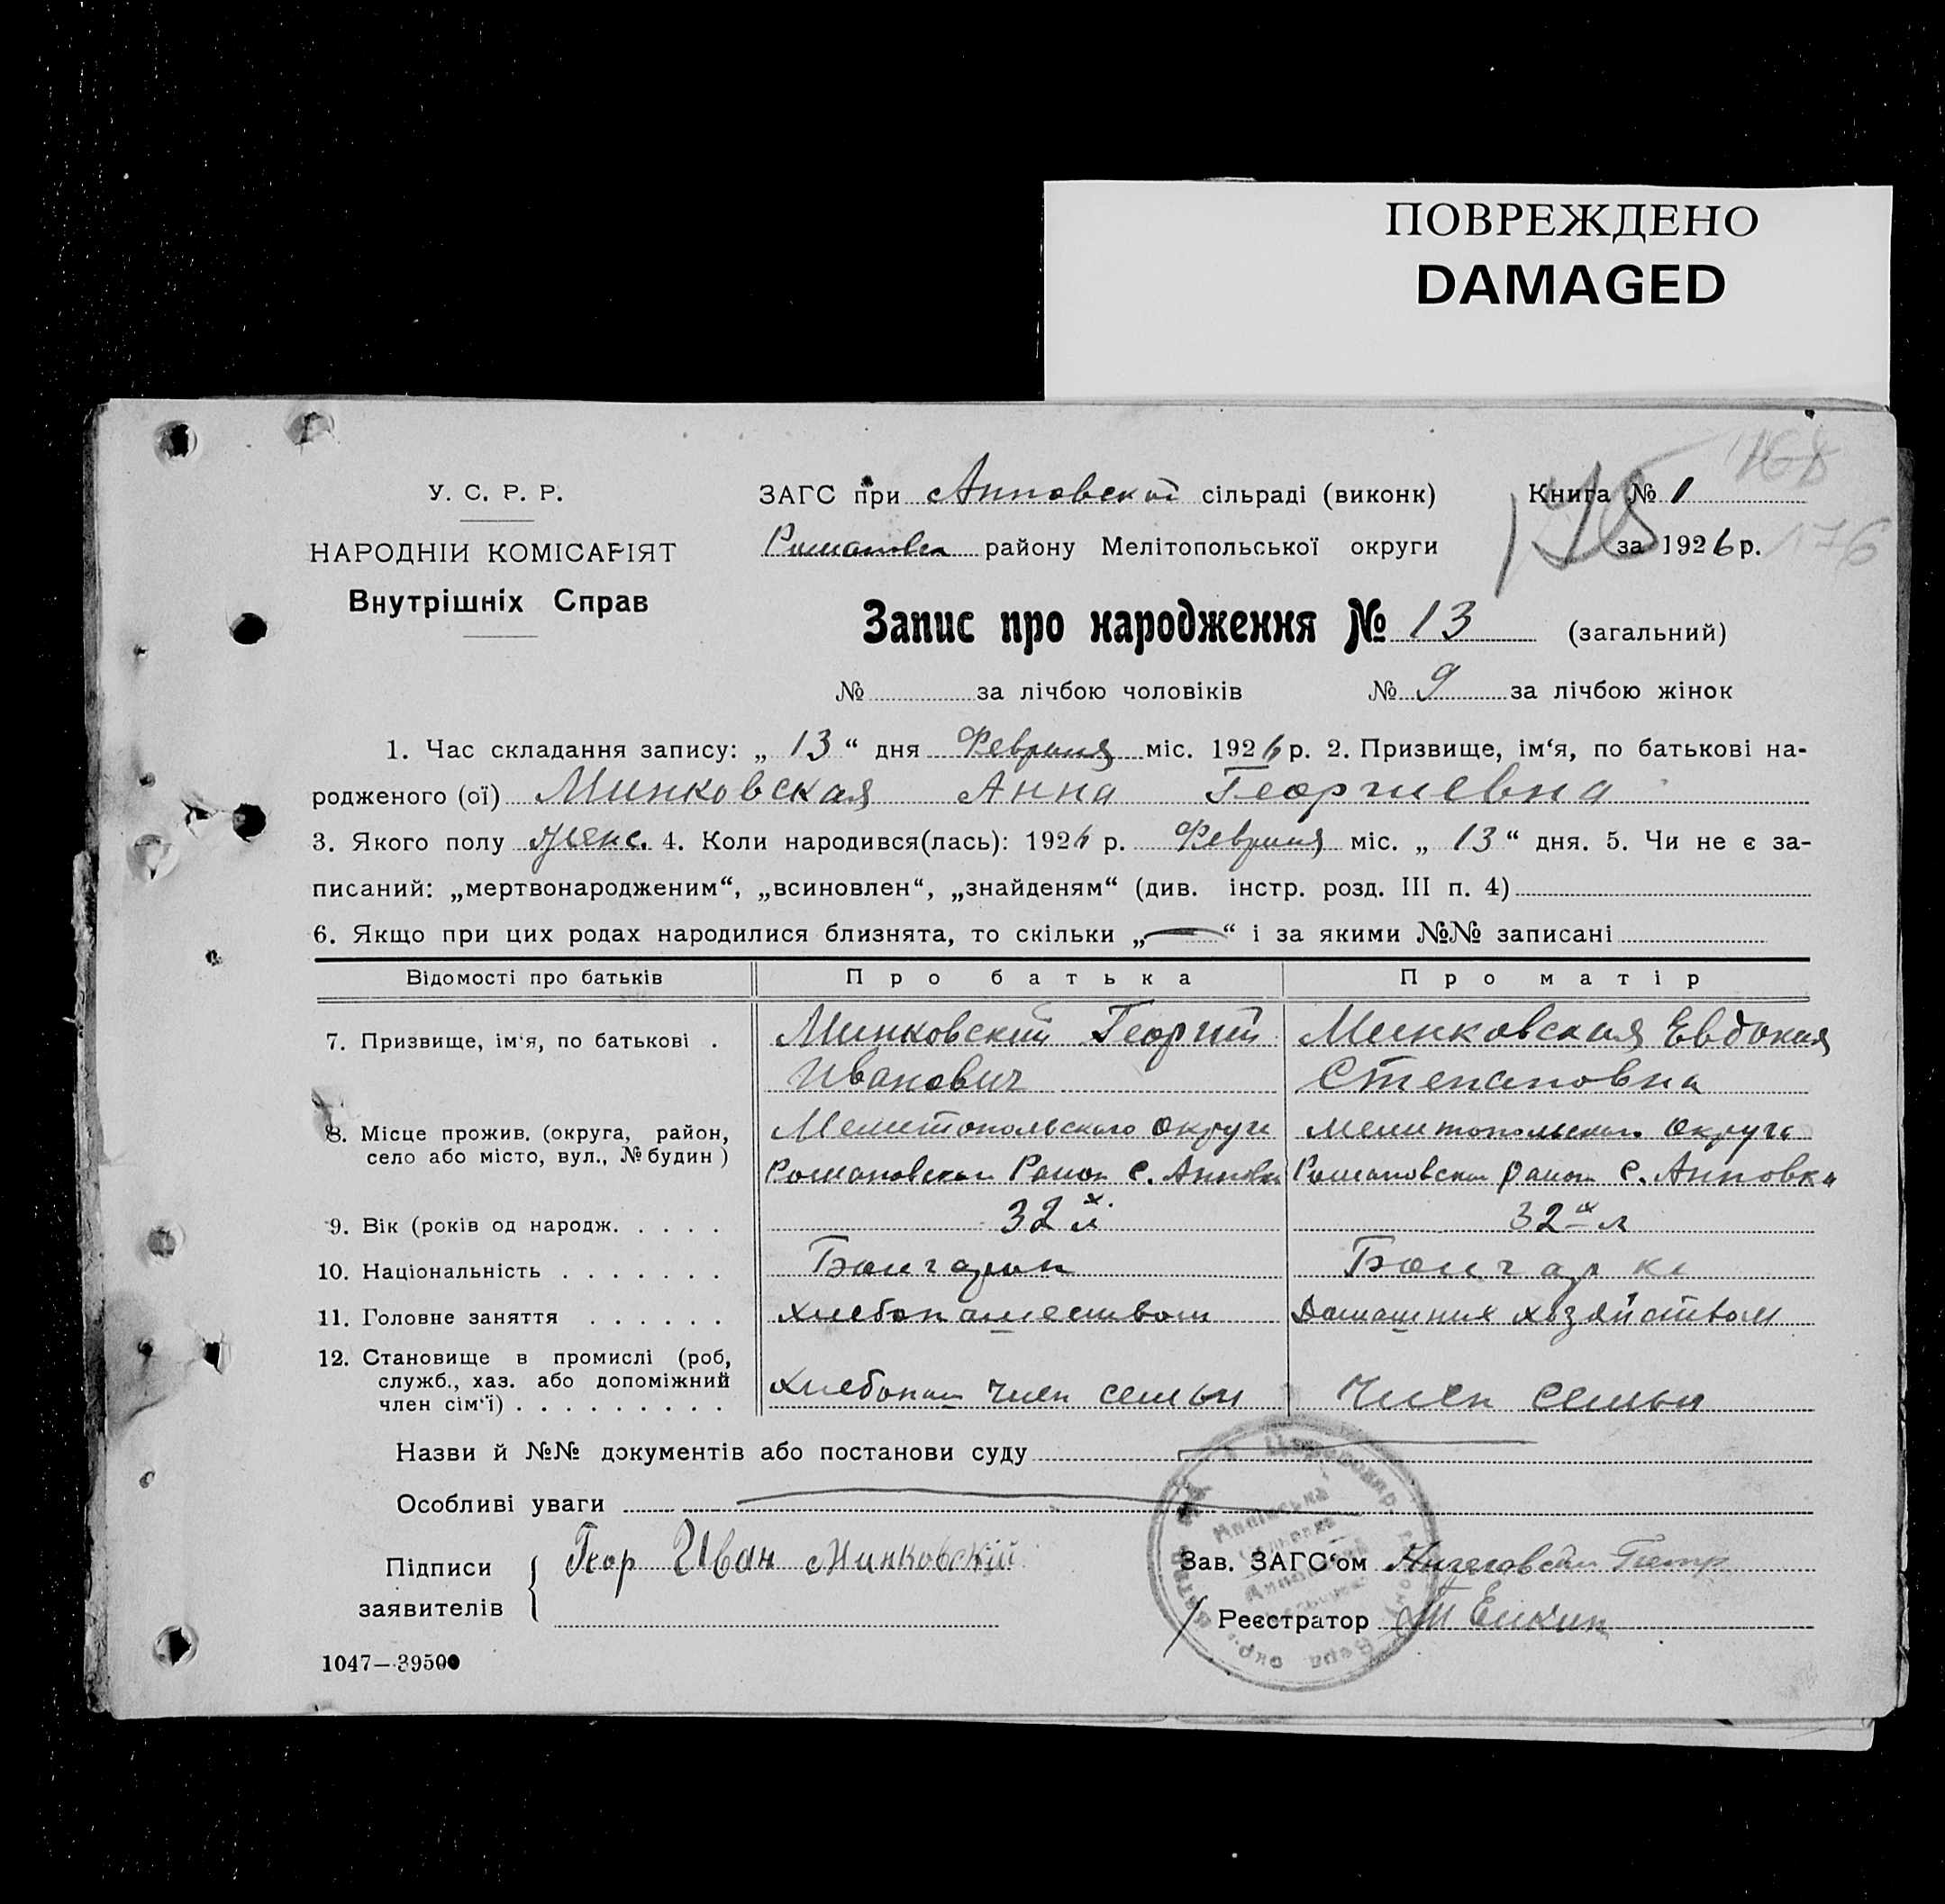 ПОВРЕЖДЕНО
DAMAGED
168
У. С. Р. Р.
ЗАГС при Анновской сільраді (виконк)
Книга № 1
НАРОДНІЙ КОМІСАРІЯТ
Романовск району Мелітопольської округи
175
за 1926 р.
176
Внутрішніх Справ
Запис про народження № 13 (загальний)
№ за лічбою чоловіків № 9 за лічбою жінок
1. Час складання запису: „ 13 “ дня Февраля міс. 1926 р. 2. Призвище, ім‘я, по батькові на-
родженого (ої) Минковская Анна Георгиевна
3. Якого полу женс. 4. Коли народився(лась): 1926 р. Февраля міс. „ 13 “ дня. 5. Чи не є за-
писаний: „мертвонародженим“, „всиновлен“, „знайденям“ (див. інстр. розд. III п. 4)
6. Якщо при цих родах народилися близнята, то скільки „ — “ і за якими №№ записані
Відомості про батьків Про батька Про матір
7. Призвище, ім‘я, по батькові . Минковский Георгий Минковская Евдокия
Иванович Степановна
8. Місце прожив. (округа, район, Мелитопольского Округа Мелитопольского Округа
село або місто, вул., № будин ) Романовскои Раион с. Анновка Романовскои Раион с. Анновка
9. Вік (років од народж. . . . . 32 х л. 32 х л
10. Національність . . . . . . . Болгарин Болгарка
11. Головне заняття . . . . . . хлебопашеством Домашних хозяйством
12. Становище в промислі (роб,
служб., хаз. або допоміжний
член сім‘ї) . . . . . . . . . Хлебопаш член семьи Член семьи
Назви й №№ документів або постанови суду
Особливі уваги
Підписи
заявителів
Геор Иван Минковский
Зав. ЗАГС‘ом Петр
Реєстратор
1047—39500